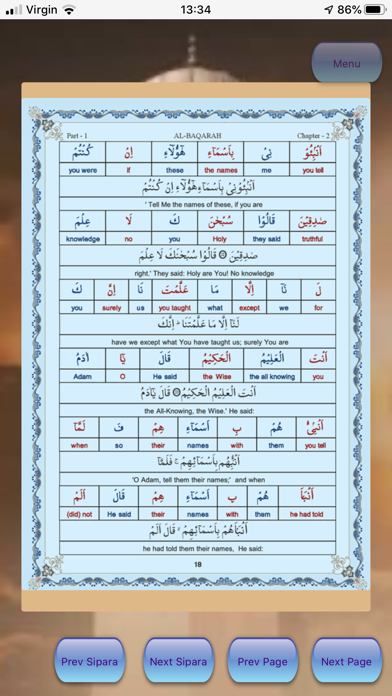 Virgin 13:34 86%
Menu
Part - 1 AL-BAQARAH Chapter - 2
اَنْۢبِئُوْ نِیْ بِاَسْمَآءِ هٰۤؤُلَآءِ اِنْ كُنْتُمْ
you were if these the names me you tell
اَنْۢبِئُوْنِیْ بِاَسْمَآءِ هٰۤؤُلَآءِ اِنْ كُنْتُمْ
' Tell Me the names of these, if you are
صٰدِقِیْنَ قَالُوْا سُبْحٰنَ كَ لَا عِلْمَ
knowledge no you Holy they said truthful
صٰدِقِیْنَ ۝ قَالُوْا سُبْحٰنَكَ لَا عِلْمَ
right.' They said: Holy are You! No knowledge
لَ نَاۤ اِلَّا مَا عَلَّمْتَ نَا اِنَّ كَ
you surely us you taught what except we for
لَنَاۤ اِلَّا مَا عَلَّمْتَنَا ؕ اِنَّكَ
have we except what You have taught us; surely You are
اَنْتَ الْعَلِیْمُ الْحَكِیْمُ قَالَ یٰۤا اٰدَمُ
Adam O He said the Wise the all knowing you
اَنْتَ الْعَلِیْمُ الْحَكِیْمُ ۝ قَالَ یٰۤاٰدَمُ
the All-Knowing, the Wise.' He said:
اَنْۢبِئْ هُمْ بِ اَسْمَآءِ هِمْ فَ لَمَّاۤ
when so their names with them you tell
اَنْۢبِئْهُمْ بِاَسْمَآئِهِمْ ۚ فَلَمَّاۤ
'O Adam, tell them their names;' and when
اَنْۢبَاَ هُمْ بِ اَسْمَآءِ هِمْ قَالَ اَلَمْ
(did) not He said their names with them he had told
اَنْۢبَاَهُمْ بِاَسْمَآئِهِمْ ۙ قَالَ اَلَمْ
he had told them their names, He said:
18
Prev Sipara Next Sipara Prev Page Next Page